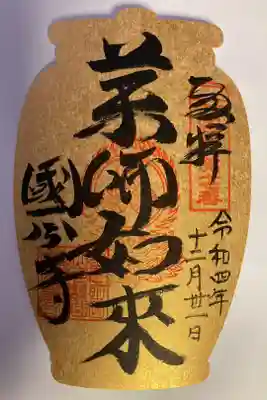 令和四年
十二月廿一日
薬師如來
國分寺